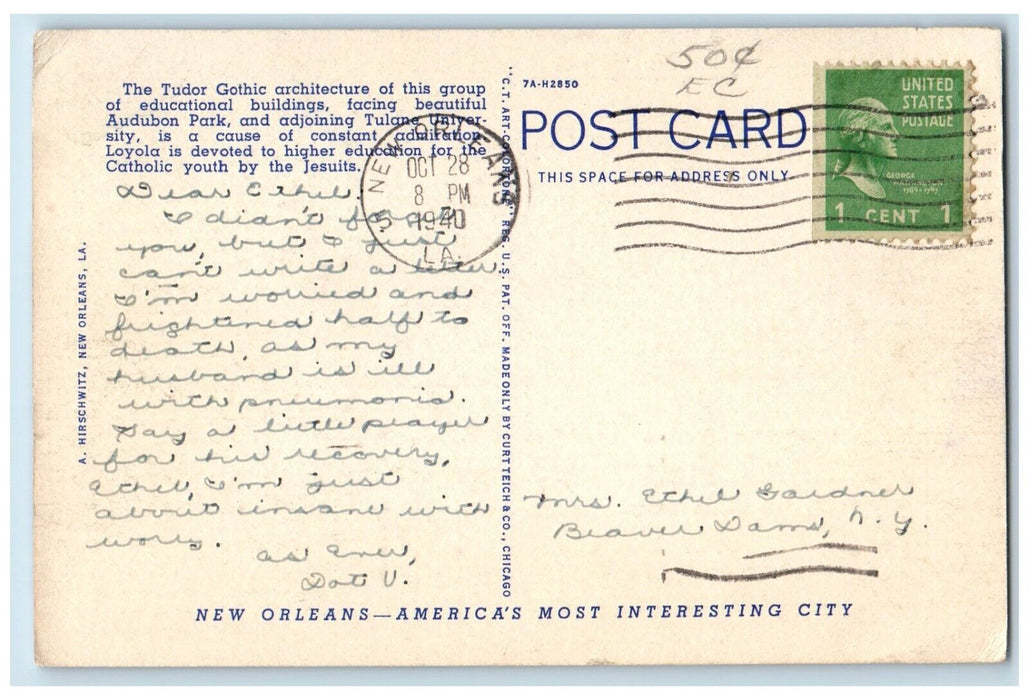 The Tudor Gothic architecture of this group
of educational buildings, facing beautiful
Audubon Park, and adjoining Tulane Univer-
sity, is a cause of constant admiration.
Loyola is devoted to higher education for the
Catholic youth by the Jesuits.
Dear Ethel.
I didn't forget
you, but I just
can't write a letter
I'm worried and
frightened half to
death, as my
husband is ill
with pneumonia.
Say a little prayer
for his recovery,
Ethel, I'm just
about insane with
worry.
As Ever,
Dot V.
A. HIRSCHWITZ, NEW ORLEANS, LA.
"C. T. ART-COLORTONE" REG. U. S. PAT. OFF. MADE ONLY BY CURT TEICH & CO., CHICAGO
NEW ORLEANS
OCT 28
8 PM
1940
LA.
7A-H2850
50¢
EC
POST CARD
THIS SPACE FOR ADDRESS ONLY
UNITED
STATES
POSTAGE
GEORGE
WASHINGTON
1789-1797
1 CENT 1
Mrs. Ethel Gardner
Beaver Dams, N.Y.
NEW ORLEANS—AMERICA'S MOST INTERESTING CITY